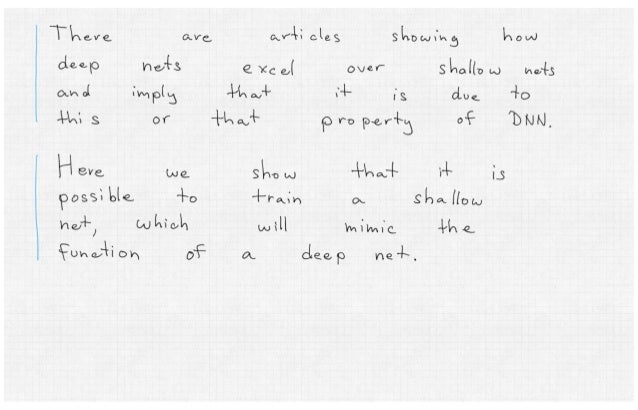 There are articles showing how
deep nets excel over shallow nets
and imply that it is due to
this or that property of DNN.
Here we show that it is
possible to train a shallow
net, which will mimic the
function of a deep net.